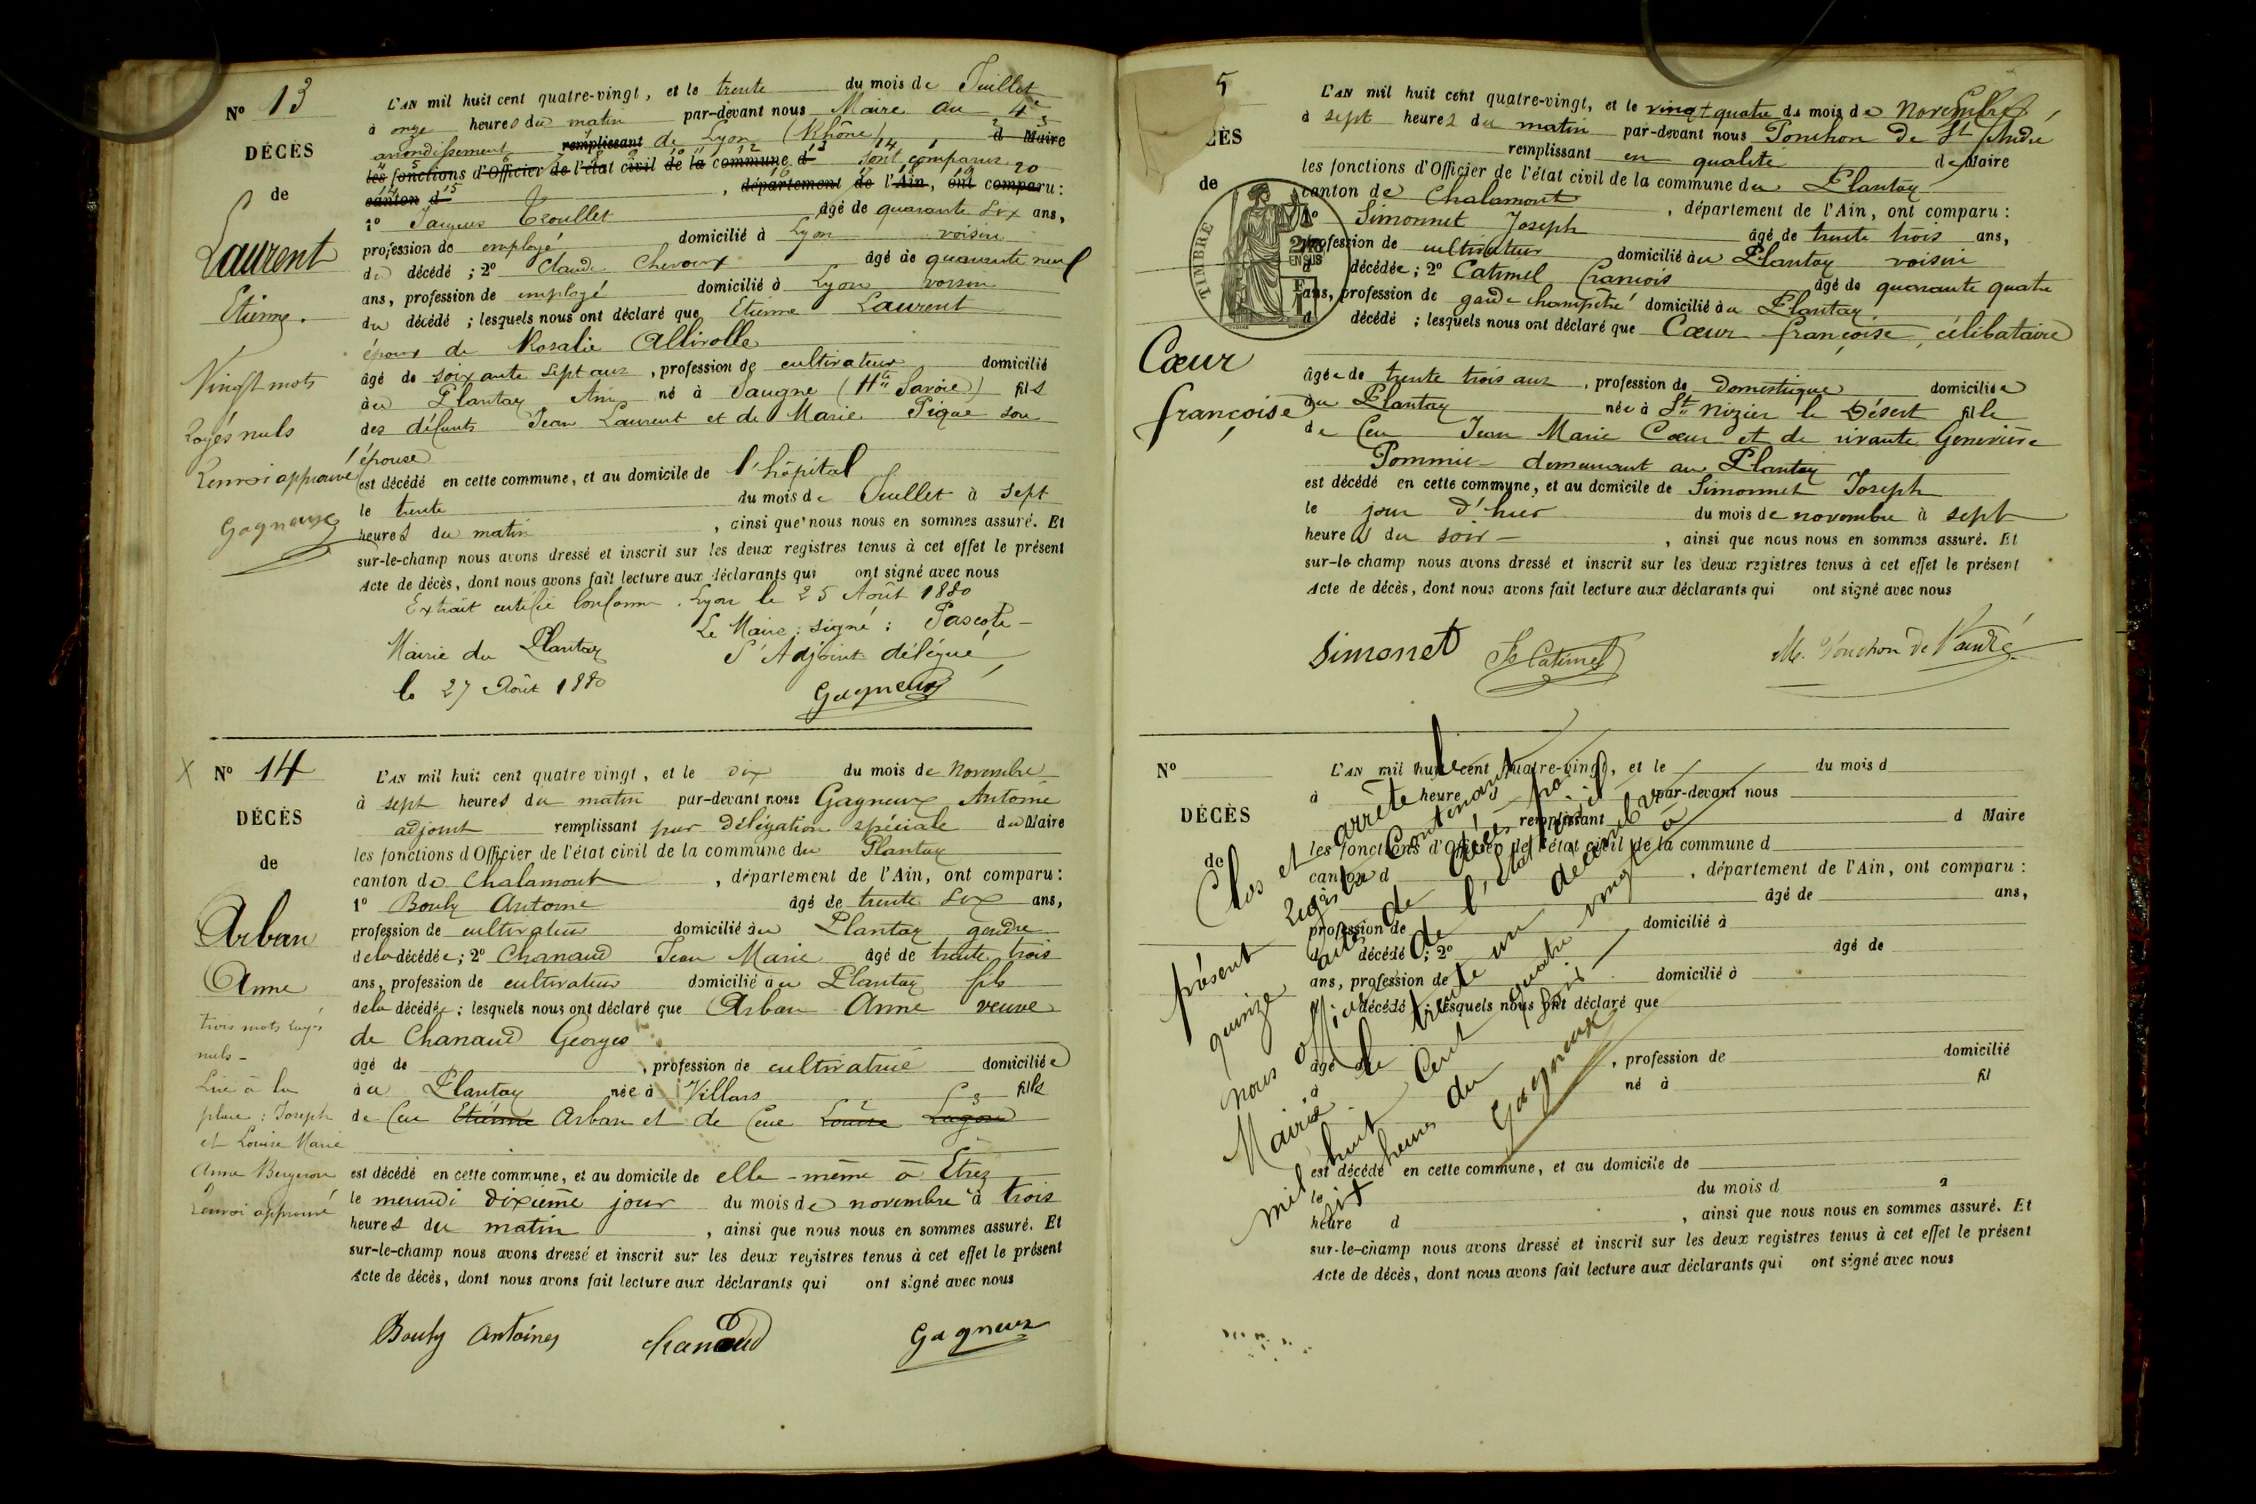 No 13
DÉCÈS
de
Laurent
Etienne.
Vingt mots
rayés nuls
Renvoi approuvé
Gagneux
L'AN mil huit cent quatre-vingt, et le trente du mois de Juillet
à onze heures du matin par-devant nous Maire du 4e
arrondissement remplissant de Lyon (Rhône) d Maire
les fonctions d'Officier de l'état civil de la commune d sont comparus
canton d , département de l'Ain, ont comparu :
1o Jacques âgé de quarante six ans,
profession de employé domicilié à Lyon voisin
du décédé ; 2o Claude âgé de quarante neuf
ans, profession de employé domicilié à Lyon voisin
du décédé ; lesquels nous ont déclaré que Etienne Laurent
époux de Rosalie
âgé de soixante sept ans, profession de cultivateur domicilié
au Plantay Ain né à (Hte Savoie) fils
des défunts Jean Laurent et de Marie Pique son
épouse
est décédé en cette commune, et au domicile de l'hôpital
le trente du mois de Juillet à sept
heures du matin , ainsi que nous nous en sommes assuré. Et
sur-le-champ nous avons dressé et inscrit sur les deux registres tenus à cet effet le présent
Acte de décès, dont nous avons fait lecture aux déclarants qui ont signé avec nous
Extrait certifié conforme. Lyon le 25 Août 1880
Le Maire : signé :
Mairie du Plantay L'Adjoint délégué
le 27 Août 1880
Gagneux
No 14
DÉCÈS
de
Arban
Anne
trois mots rayés
nuls -
Lire à la
place : Joseph
et Louise Marie
Anne Bergeron
Renvoi approuvé
L'AN mil huit cent quatre vingt, et le dix du mois de Novembre
à sept heures du matin par-devant nous Gagneux Antoine
adjoint remplissant par délégation spéciale du Maire
les fonctions d'Officier de l'état civil de la commune du Plantay
canton de Chalamont , département de l'Ain, ont comparu :
1o Bouly Antoine âgé de trente six ans,
profession de cultivateur domicilié au Plantay gendre
de la décédée ; 2o Chanaud Jean Marie âgé de trente trois
ans, profession de cultivateur domicilié au Plantay fils
de la décédée ; lesquels nous ont déclaré que Arban Anne veuve
de Chanaud Georges
âgé de , profession de cultivatrice domiciliée
au Plantay née à Villars fille
de feu Etienne Arban et de feue Louise Lugon
est décédé en cette commune, et au domicile de elle-même à Etrez
le dixième jour du mois de novembre à trois
heures du matin , ainsi que nous nous en sommes assuré. Et
sur-le-champ nous avons dressé et inscrit sur les deux registres tenus à cet effet le présent
Acte de décès, dont nous avons fait lecture aux déclarants qui ont signé avec nous
Bouly Antoine Chanaud Gagneux
5
CÈS
de
TIMBRE
Cœur
françoise
L'AN mil huit cent quatre-vingt, et le vingt quatre du mois de Novembre
à sept heures du matin par-devant nous Ponchon de St André
remplissant en qualité de Maire
les fonctions d'Officier de l'état civil de la commune du Plantay
canton de Chalamont , département de l'Ain, ont comparu :
1o Simonnet Joseph âgé de trente trois ans,
profession de cultivateur domicilié au Plantay voisin
d décédée ; 2o Catimel François âgé de quarante quatre
ans, profession de garde champêtre domicilié au Plantay
d décédé ; lesquels nous ont déclaré que Cœur françoise, célibataire
âgée de trente trois ans, profession de Domestique domiciliée
au Plantay née à St Nizier le Désert fille
de feu Jean Marie Cœur et de vivante Geneviève
Pommier demeurant au Plantay
est décédé en cette commune, et au domicile de Simonnet Joseph
le jour d'hier du mois de novembre à sept
heures du soir - , ainsi que nous nous en sommes assuré. Et
sur-le-champ nous avons dressé et inscrit sur les deux registres tenus à cet effet le présent
Acte de décès, dont nous avons fait lecture aux déclarants qui ont signé avec nous
Simonet Catimel Ponchon de St André
No
DÉCÈS
de
L'AN mil huit cent quatre-vingt, et le du mois d
à heure par-devant nous
remplissant d Maire
les fonctions d'Officier de l'état civil de la commune d
canton d , département de l'Ain, ont comparu :
âgé de ans,
profession de domicilié à
décédé ; 2o âgé de
ans, profession de domicilié à
décédé ; lesquels nous ont déclaré que
âgé de , profession de domicilié
à né à fil
est décédé en cette commune, et au domicile de
le du mois d à
heure d , ainsi que nous nous en sommes assuré. Et
sur-le-champ nous avons dressé et inscrit sur les deux registres tenus à cet effet le présent
Acte de décès, dont nous avons fait lecture aux déclarants qui ont signé avec nous
Clos et arrêté le
présent registre contenant
quinze actes de décès par
nous officier de l'état civil
Mairie le trente un décembre
mil huit cent quatre vingt à
six heures du soir
Gagneux